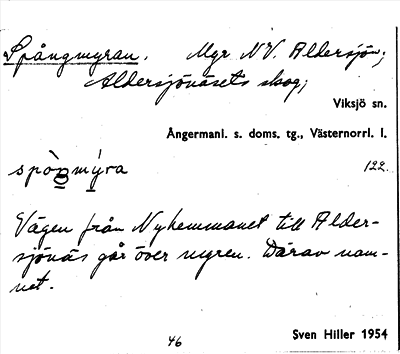 Spångmyran. Myr NV. Aldersjön;
Aldersjönäsets skog;
Viksjö sn.
Ångermanl. s. doms. tg., Västernorrl. l.
spòŋmýra 122.
Vägen från Nyhemmanet till Alder-
sjönäs går över myren. Därav nam-
net.
46 Sven Hiller 1954